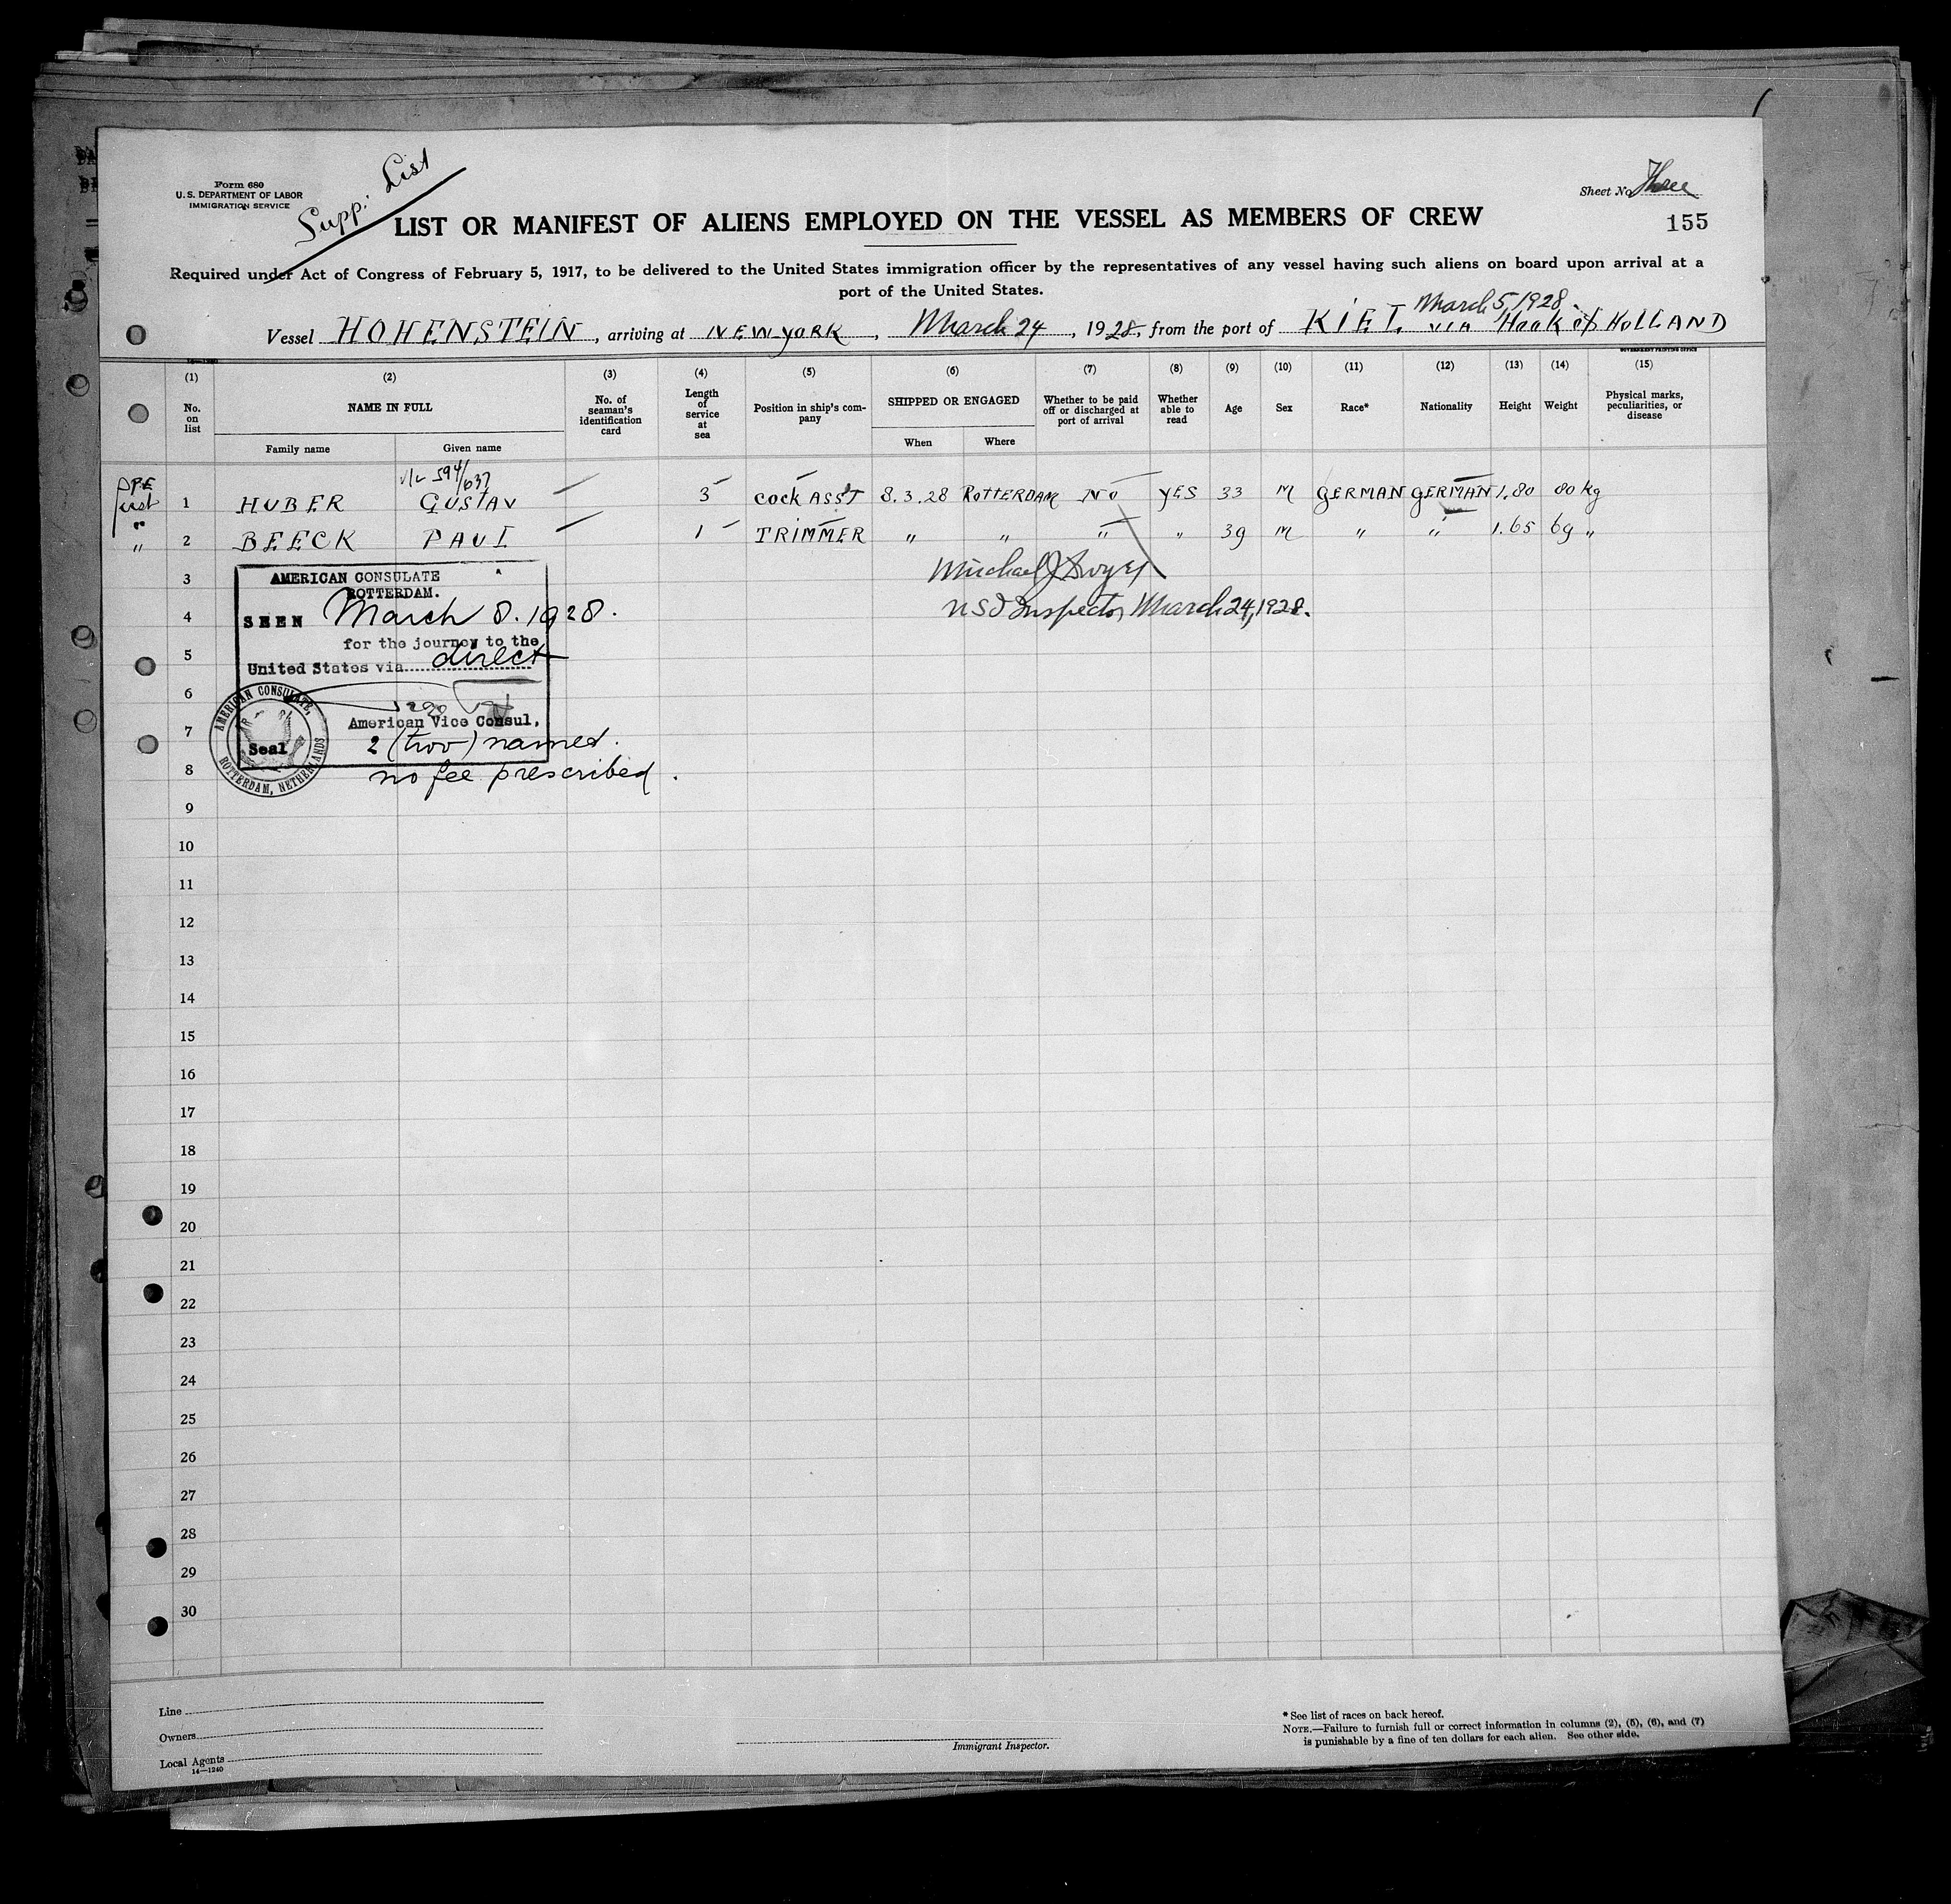 Form 680
U. S. DEPARTMENT OF LABOR
IMMIGRATION SERVICE
Supp. List
Sheet No. Three
155
LIST OR MANIFEST OF ALIENS EMPLOYED ON THE VESSEL AS MEMBERS OF CREW
Required under Act of Congress of February 5, 1917, to be delivered to the United States immigration officer by the representatives of any vessel having such aliens on board upon arrival at a
port of the United States.
March 5, 1928.
Vessel HOHENSTEIN, arriving at NEW-YORK, March 24, 1928, from the port of KIEL VIA Hook of HOLLAND
GOVERNMENT PRINTING OFFICE
(1) (2) (3) (4) (5) (6) (7) (8) (9) (10) (11) (12) (13) (14) (15)
No. on list
NAME IN FULL
Family name
Given name
No. of seaman's identification card
Length of service at sea
Position in ship's com-
pany
SHIPPED OR ENGAGED
When
Where
Whether to be paid
off or discharged at
port of arrival
Whether able to read
Age
Sex
Race*
Nationality
Height
Weight
Physical marks,
peculiarities, or
disease
594/637
first 1 HUBER GUSTAV — 3 COCK ASST 8.3.28 ROTTERDAM NO YES 33 M GERMAN GERMAN 1.80 80 kg
" 2 BEECK PAUL — 1 TRIMMER " " " " 39 M " " 1.65 69 "
3
4
5
6
7
8
AMERICAN CONSULATE
ROTTERDAM.
SEEN March 8. 1928.
for the journey to the
United States via direct
American Vice Consul.
2 (two) named.
no fee prescribed.
AMERICAN CONSULATE,
ROTTERDAM, NETHERLANDS
Seal
Michael J Dwyer
U S I Inspector March 24, 1928.
9
10
11
12
13
14
15
16
17
18
19
20
21
22
23
24
25
26
27
28
29
30
Line
Owners
Local Agents
14—1240
Immigrant Inspector.
* See list of races on back hereof.
NOTE.—Failure to furnish full or correct information in columns (2), (5), (6), and (7)
is punishable by a fine of ten dollars for each alien. See other side.